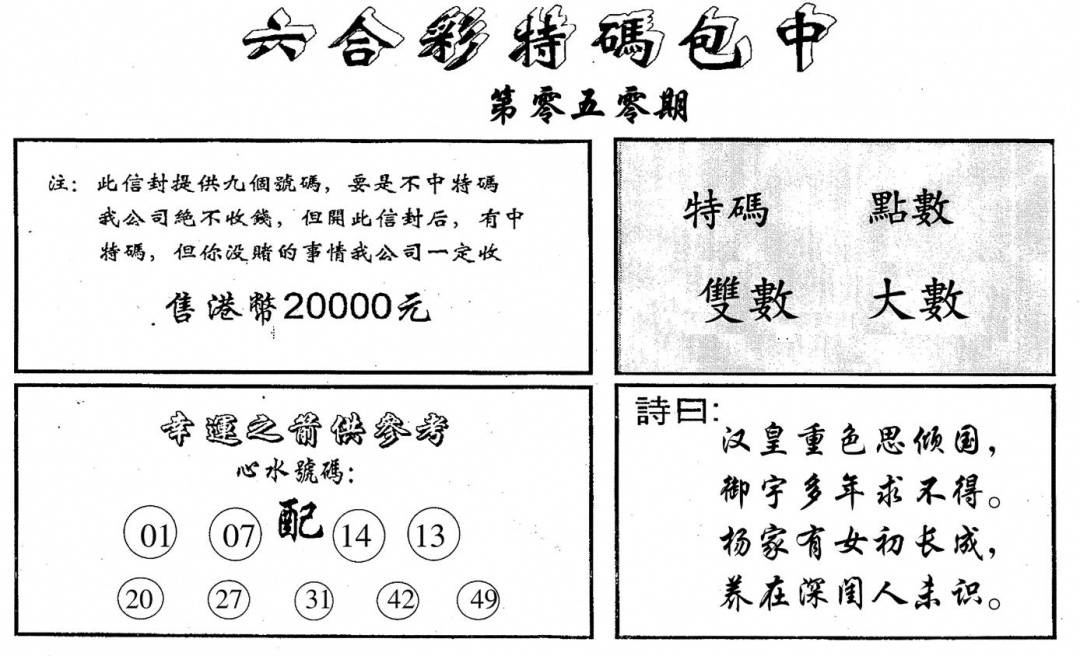 六合彩特碼包中
第零五零期
注：此信封提供九個號碼，要是不中特碼
我公司絕不收錢，但開此信封后，有中
特碼，但你没賭的事情我公司一定收
售港幣20000元
特碼 點數
雙數 大數
幸運之箭供參考
心水號碼：
01 07 配 14 13
20 27 31 42 49
詩曰：
汉皇重色思倾国，
御宇多年求不得。
杨家有女初长成，
养在深闺人未识。